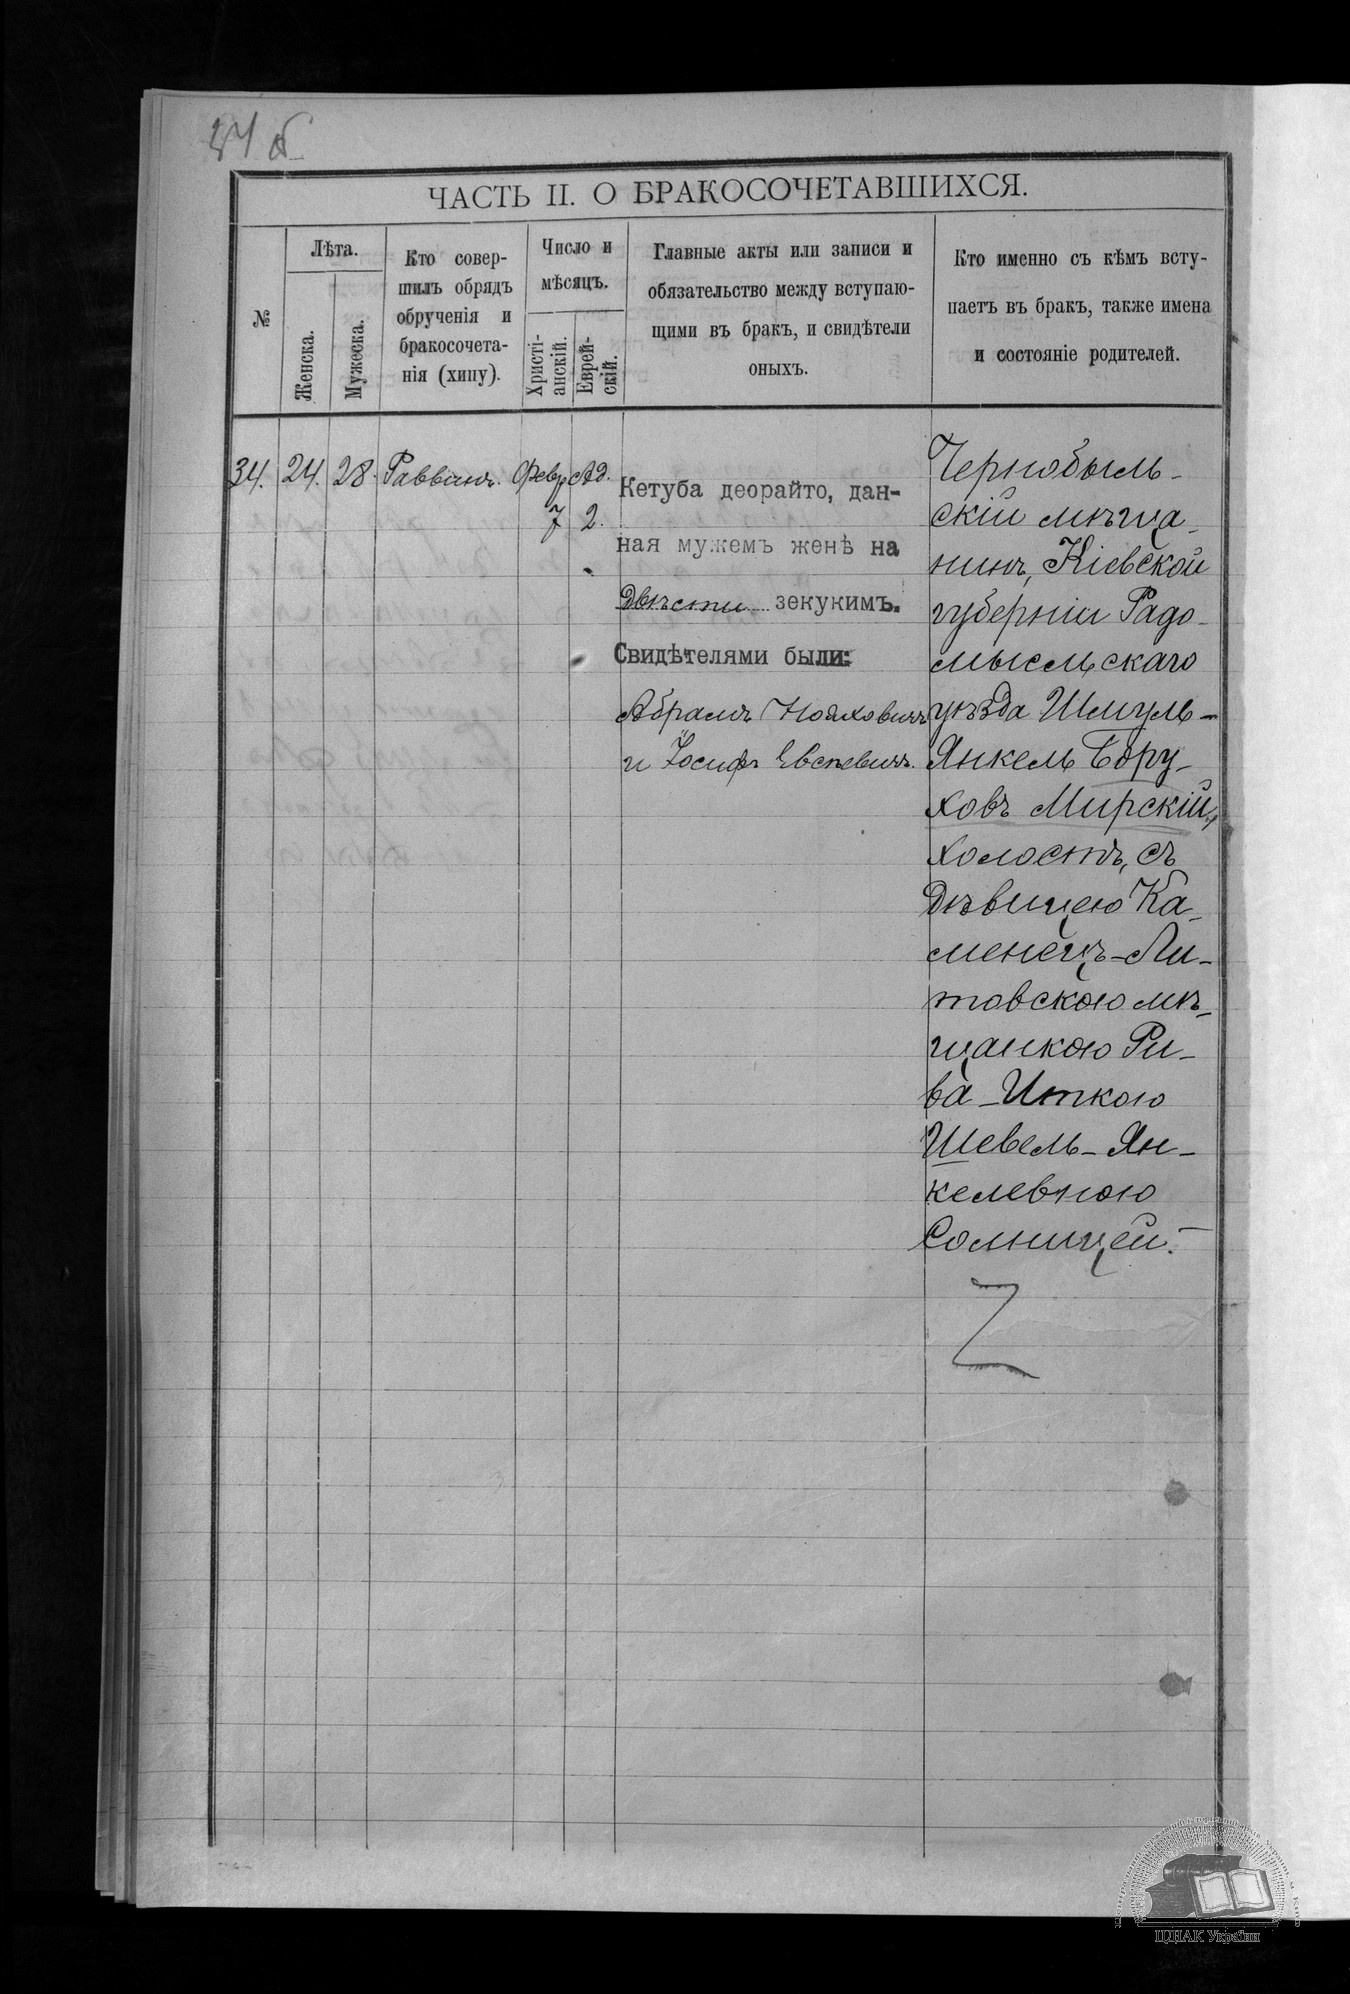 ЧАСТЬ II. О БРАКОСОЧЕТАВШИХСЯ.
№
Лѣта.
Женска.
Мужеска.
Кто совер-
шилъ обрядъ
обрученія и
бракосочета-
нія (хипу).
Число и
мѣсяцъ.
Христі-
анскій.
Еврей-
скій.
Главные акты или записи и
обязательство между вступаю-
щими въ бракъ, и свидѣтели
оныхъ.
Кто именно съ кѣмъ всту-
паетъ въ бракъ, также имена
и состояніе родителей.
34. 24. 28. Раввинъ. Февр Ад.
7 2.
Кетуба деорайто, дан-
ная мужемъ женѣ на
Двѣсти зекукимъ.
Свидѣтелями были:
Абрамъ Нояховичъ
и Іосифъ Евсѣевичъ.
Чернобыль-
скій мѣща-
нинъ, Кіевской
губерніи Радо-
мысльскаго
уѣзда Шмуль-
Янкель Бору-
ховъ Мирскій,
холостъ, съ
дѣвицею Ка-
менецъ-Ли-
товскою мѣ-
щанкою Ри-
ва-Иткою
Шевель-Ян-
келевною
Солницей.
ЦДІАК України